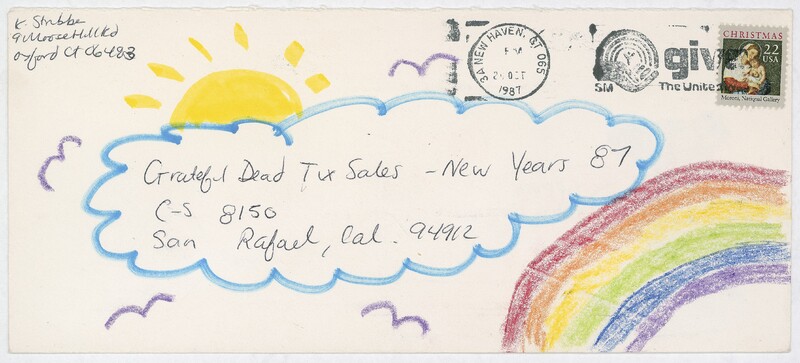 K. Strubbe
9 Moose Hill Rd
Oxford CT 06483
3A NEW HAVEN, CT 065
PM
OCT
1987
SM
give
The United
CHRISTMAS
22
USA
Moroni, National Gallery
Grateful Dead Tix Sales - New Years 87
C-S 8150
San Rafael, Cal. 94912